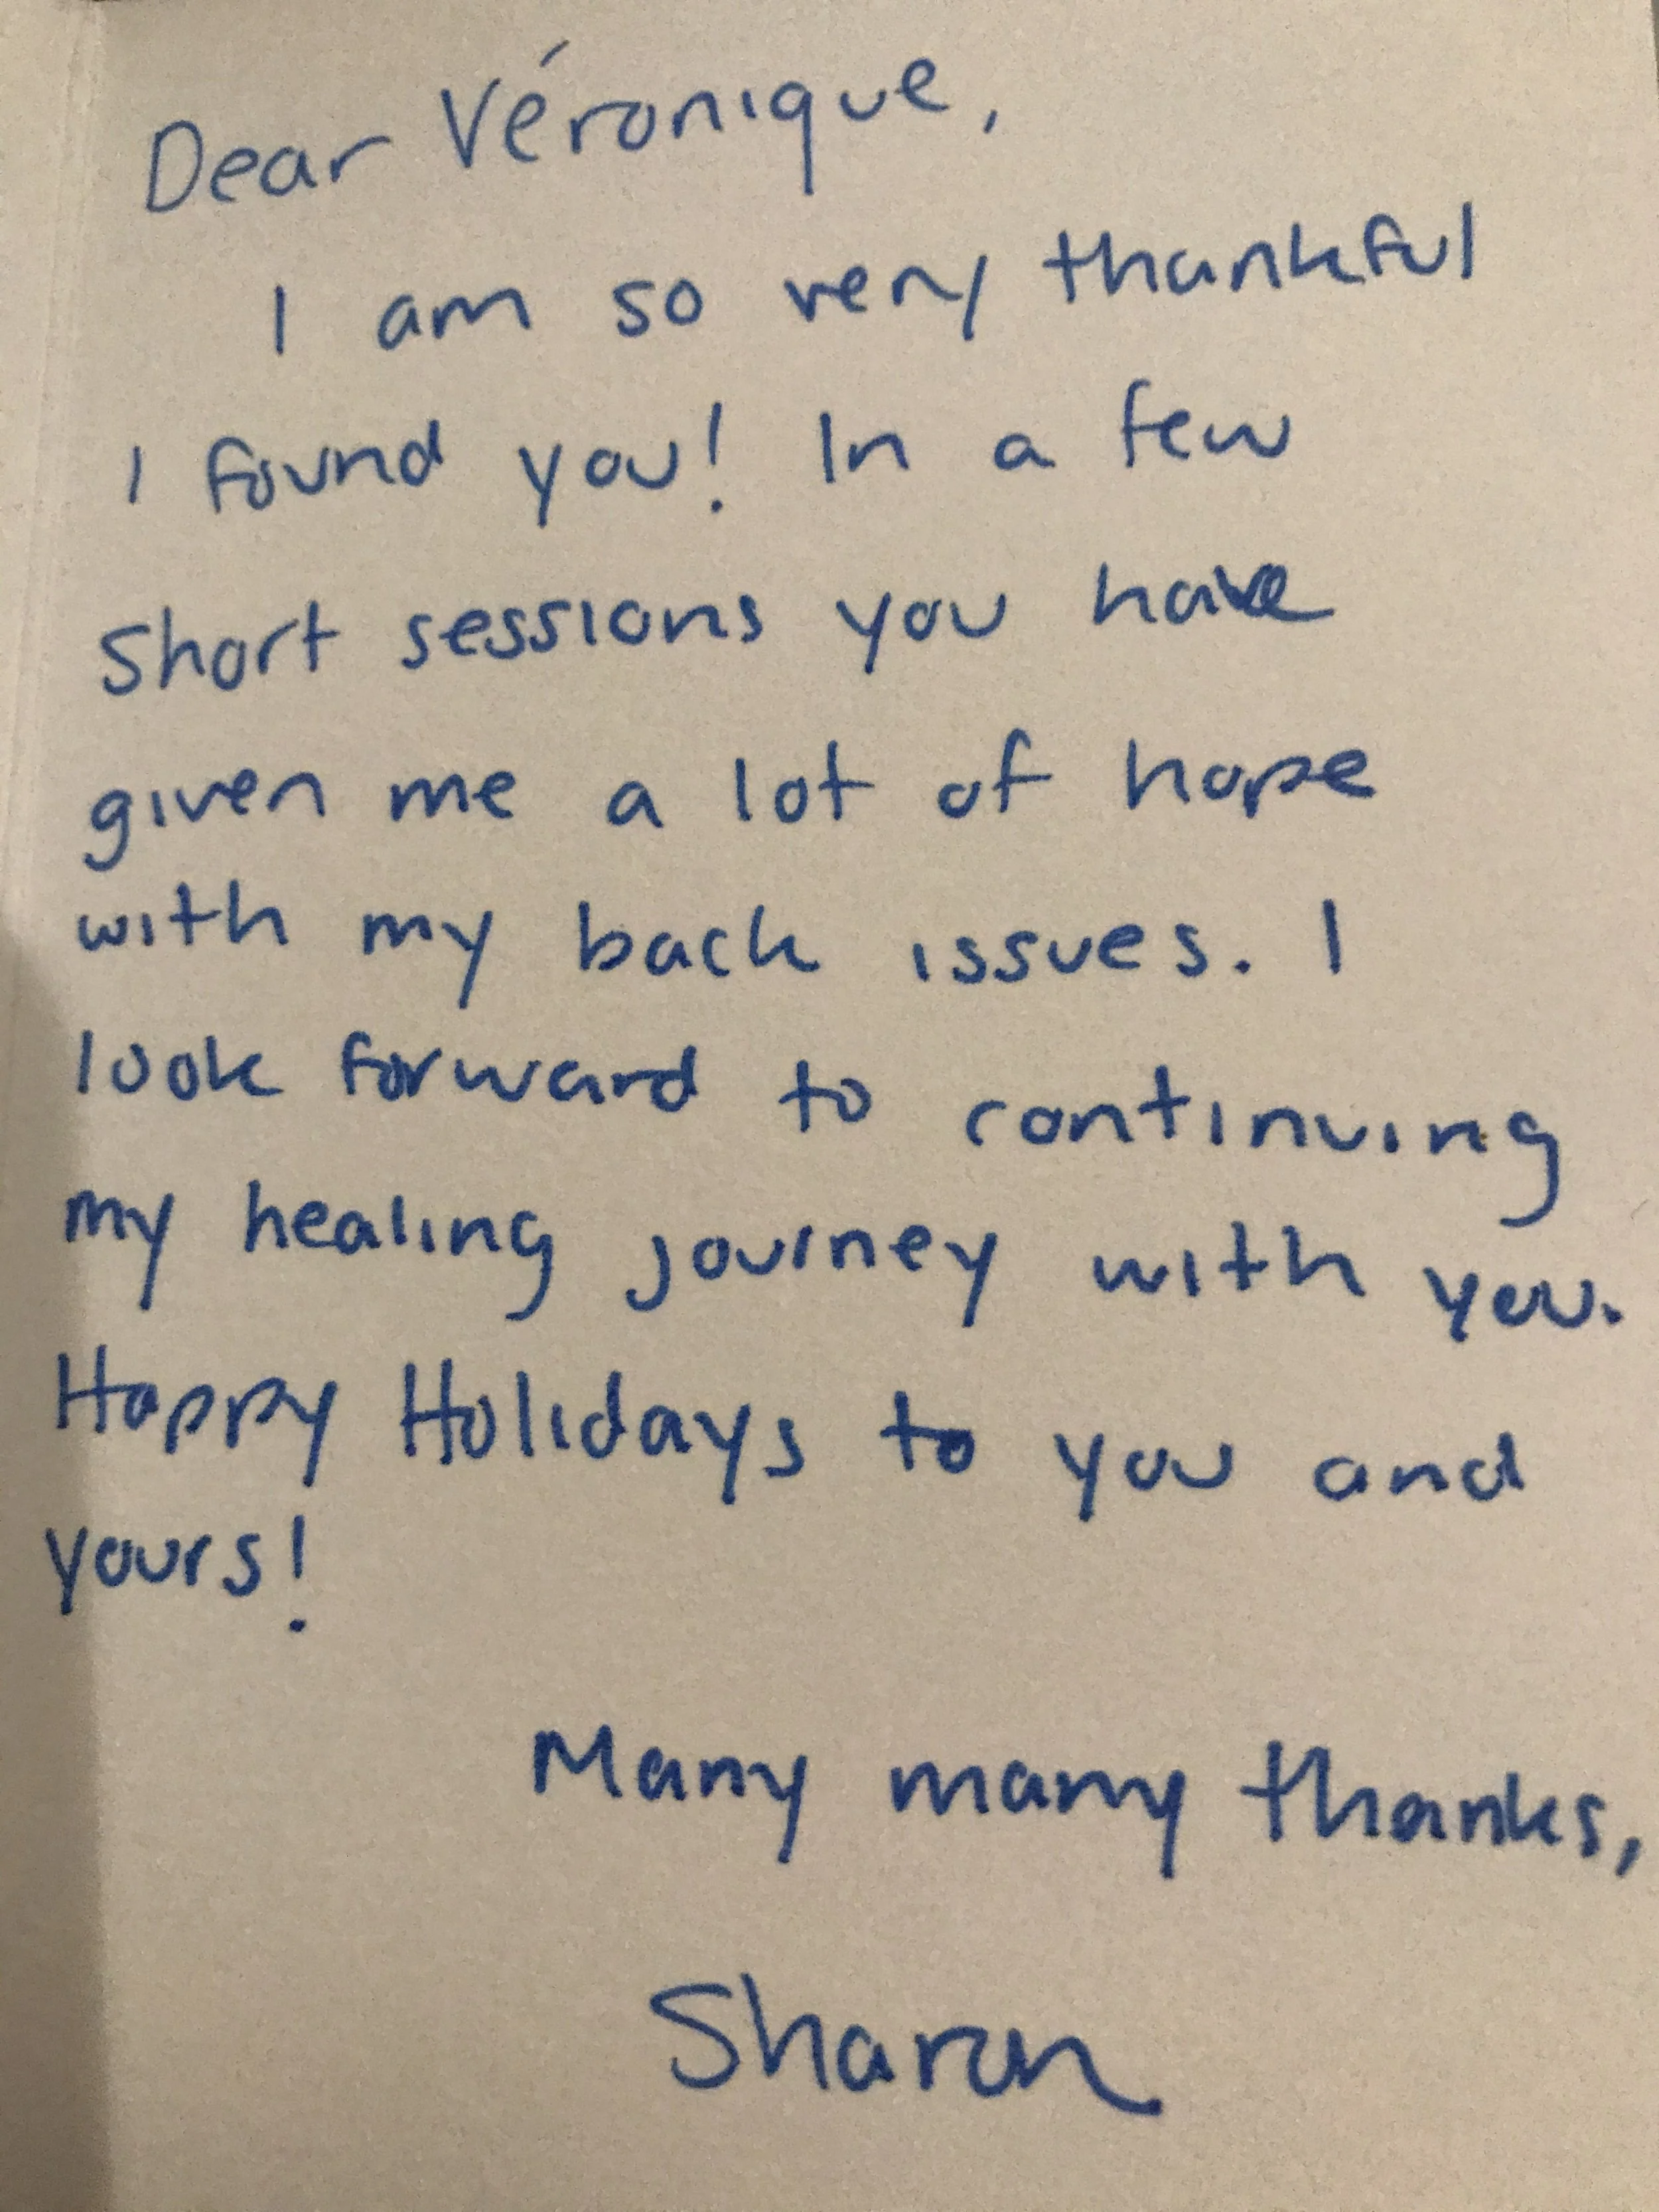 Dear Véronique,
I am so very thankful
I found you! In a few
short sessions you have
given me a lot of hope
with my back issues. I
look forward to continuing
my healing journey with you.
Happy Holidays to you and
yours!
Many many thanks,
Sharon